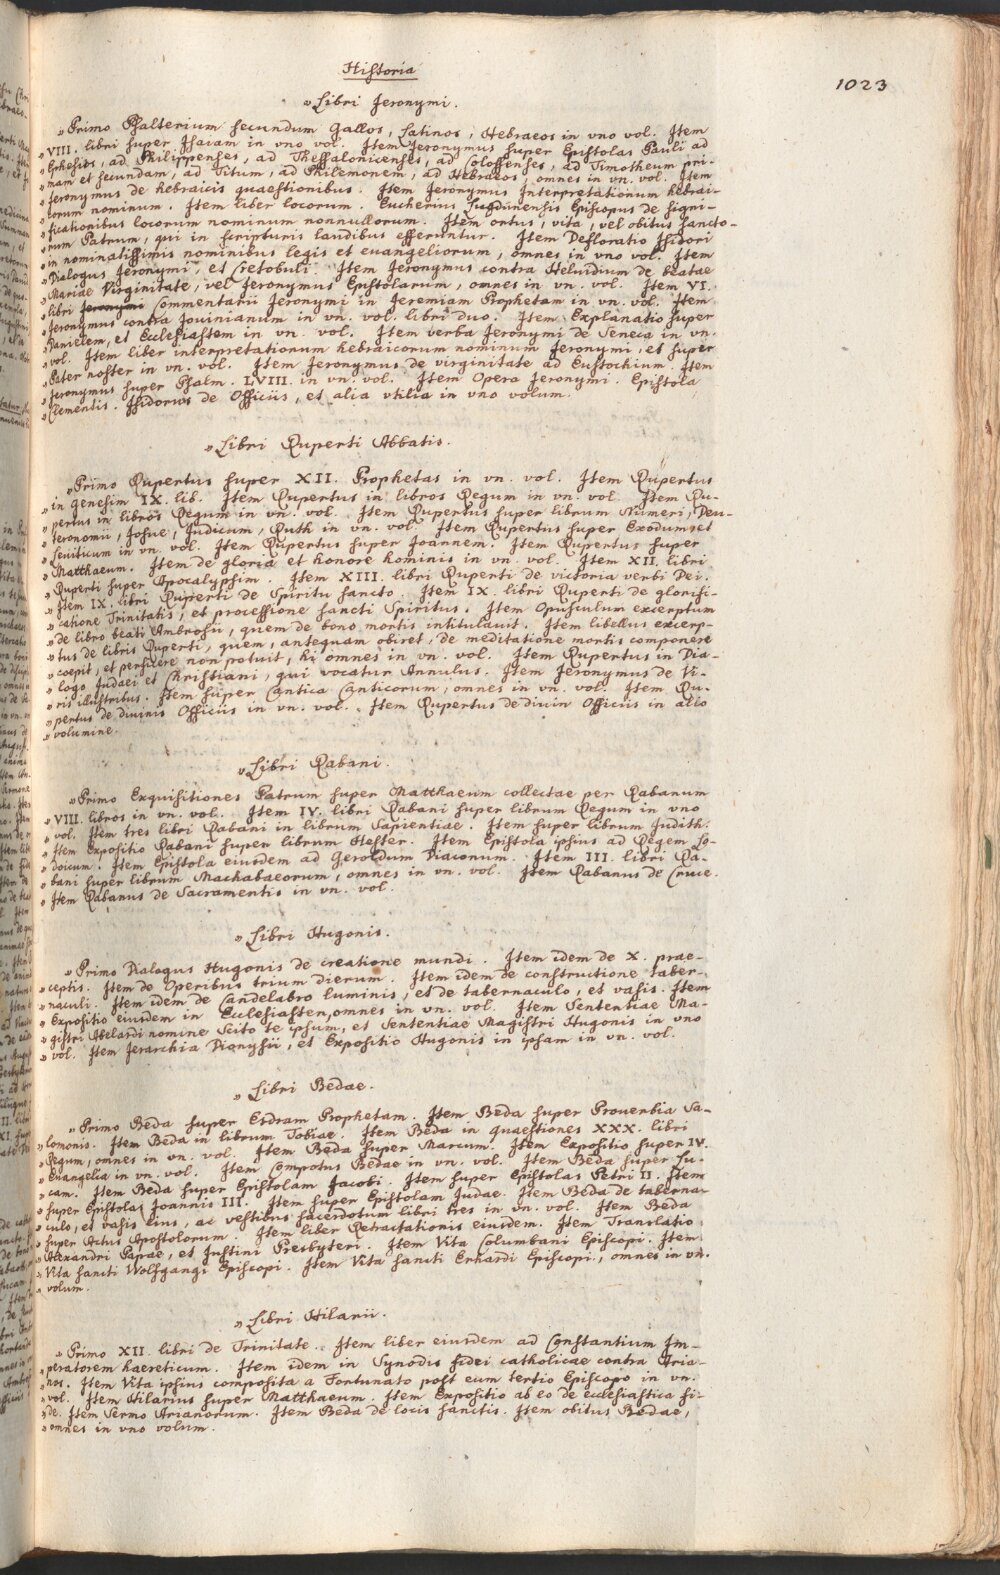 Historia
1023
» Libri Jeronymi.
» Primo Psalterium secundum Gallos, Latinos, Hebraeos in vno vol. Item
» VIII. libri super Isaiam in vno vol. Item Jeronymus super Epistolas Pauli ad
» Ephesios, ad Philippenses, ad Thessalonicenses, ad Colossenses, ad Timotheum pri-
» mam et secundam, ad Titum, ad Philemonem, ad Hebraeos, omnes in vn. vol. Item
» Jeronymus de hebraicis quaestionibus. Item Jeronymus Interpretationum hebrai-
» corum nominum. Item liber locorum. Eucherius Lugdunensis Episcopus de signi-
» ficationibus locorum nominum nonnullorum. Item ortus, vita, vel obitus sancto-
» rum Patrum, qui in scripturis laudibus efferuntur. Item Defloratio Isidori
» in nominatissimis nominibus legis et euangeliorum, omnes in vno vol. Item
» Dialogus Jeronymi, et Cretobuli. Item Jeronymus contra Heluidium de beatae
» Mariae Virginitate, vel Jeronymus Epistolarum, omnes in vn. vol. Item VI.
» libri Jeronymi Commentarii Jeronymi in Jeremiam Prophetam in vn. vol. Item
» Jeronymus contra Jouinianum in vn. vol. libri duo. Item Explanatio super
» Danielem, et Ecclesiastem in vn. vol. Item verba Jeronymi de Seneca in vn.
» vol. Item liber interpretationum hebraicorum nominum Jeronymi, et super
» Pater noster in vn. vol. Item Jeronymus de virginitate ad Eustochium. Item
» Jeronymus super Psalm. LVIII. in vn. vol. Item Opera Jeronymi. Epistola
» Clementis. Isidorus de Officiis, et alia vtilia in vno volum.
» Libri Ruperti Abbatis.
» Primo Rupertus super XII. Prophetas in vn. vol. Item Rupertus
» in Genesim IX. lib. Item Rupertus in libros Regum in vn. vol. Item Ru-
» pertus in libros Regum in vn. vol. Item Rupertus super librum Numeri, Deu-
» teronomii, Josue, Judicum, Ruth in vn. vol. Item Rupertus super Exodum et
» Leuiticum in vn. vol. Item Rupertus super Joannem. Item Rupertus super
» Matthaeum. Item de gloria et honore hominis in vn. vol. Item XII. libri
» Ruperti super Apocalypsim. Item XIII. libri Ruperti de victoria verbi Dei.
» Item IX. libri Ruperti de Spiritu sancto. Item IX. libri Ruperti de glorifi-
» catione Trinitatis, et processione sancti Spiritus. Item Opusculum excerptum
» de libro beati Ambrosii, quem de bono mortis intitulauit. Item libellus excerp-
» tus de libris Ruperti, quem, antequam obiret, de meditatione mortis componere
» coepit, et perficere non potuit, hi omnes in vn. vol. Item Rupertus in Dia-
» logo Judaei et Christiani, qui vocatur Annulus. Item Jeronymus de Vi-
» ris illustribus. Item super Cantica Canticorum, omnes in vn. vol. Item Ru-
» pertus de diuinis Officiis in vn. vol. Item Rupertus de diuin Officiis in alio
» volumine.
» Libri Rabani.
» Primo Exquisitiones Patrum super Matthaeum collectae per Rabanum
» VIII. libros in vn. vol. Item IV. libri Rabani super librum Regum in vno
» vol. Item tres libri Rabani in librum Sapientiae. Item super librum Judith.
» Item Expositio Rabani super librum Hester. Item Epistola ipsius ad Regem Lo-
» doicum. Item Epistola eiusdem ad Geroldum Diaconum. Item III. libri Ra-
» bani super librum Machabaeorum, omnes in vn. vol. Item Rabanus de Cruce.
» Item Rabanus de Sacramentis in vn. vol.
» Libri Hugonis.
» Primo Dialogus Hugonis de creatione mundi. Item idem de X. prae-
» ceptis. Item de Operibus trium dierum. Item idem de constructione taber-
» naculi. Item idem de Candelabro luminis, et de tabernaculo, et vasis. Item
» Expositio eiusdem in Ecclesiasten, omnes in vn. vol. Item Sententiae Ma-
» gistri Abelardi nomine Scito te ipsum, et Sententiae Magistri Hugonis in vno
» vol. Item Jerarchia Dionysii, et Expositio Hugonis in ipsam in vn. vol.
» Libri Bedae.
» Primo Beda super Esdram Prophetam. Item Beda super Prouerbia Sa-
» lomonis. Item Beda in librum Tobiae. Item Beda in quaestiones XXX. libri
» Regum, omnes in vn. vol. Item Beda super Marcum. Item Expositio super IV.
» Euangelia in vn. vol. Item Compotus Bedae in vn. vol. Item Beda super Lu-
» cam. Item Beda super Epistolam Jacobi. Item super Epistolas Petri II. Item
» super Epistolas Joannis III. Item super Epistolam Judae. Item Beda de taberna-
» culo, et vasis eius, ac vestibus sacerdotum libri tres in vn. vol. Item Beda
» super Actus Apostolorum. Item liber Retractationis eiusdem. Item Translatio
» Alexandri Papae, et Justini Presbyteri. Item Vita Columbani Episcopi. Item
» Vita sancti Wolfgangi Episcopi. Item Vita sancti Erhardi Episcopi, omnes in vn.
» volum.
» Libri Hilarii.
» Primo XII. libri de Trinitate. Item liber eiusdem ad Constantium Im-
» peratorem haereticum. Item idem in Synodis fidei catholicae contra Aria-
» nos. Item Vita ipsius composita a Fortunato post eum tertio Episcopo in vn.
» vol. Item Hilarius super Matthaeum. Item Expositio ab eo de ecclesiastica fi-
» de. Item Sermo Arianorum. Item Beda de locis sanctis. Item obitus Bedae,
» omnes in vno volum.